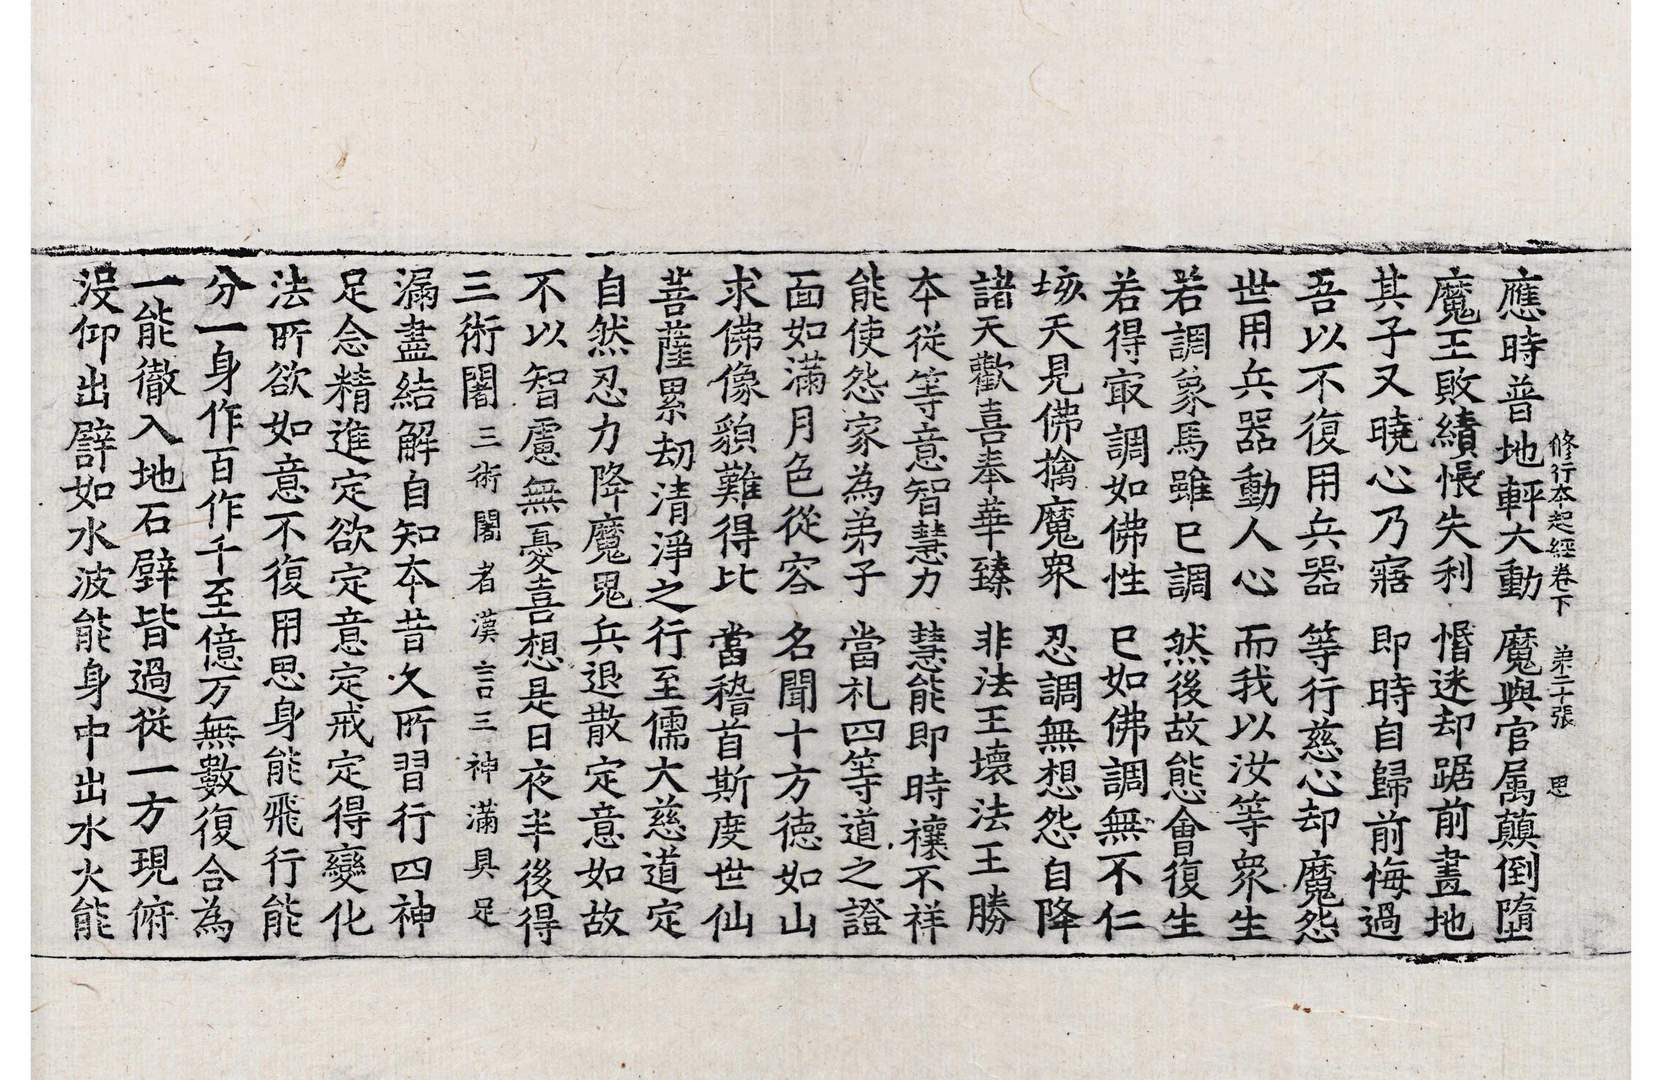 修行本起經卷下 第二十張 思
應時普地軯大動 魔與官属顛倒墮
魔王敗績悵失利 惛迷却踞前畫地
其子又曉心乃寤 即時自歸前悔過
吾以不復用兵器 等行慈心却魔怨
世用兵器動人心 而我以汝等衆生
若調象馬雖已調 然後故態會復生
若得冣調如佛性 已如佛調無不仁
垓天見佛擒魔衆 忍調無想怨自降
諸天歡喜奉華臻 非法王壞法王勝
本從等意智慧力 慧能即時禳不祥
能使怨家為弟子 當礼四等道之證
面如滿月色從容 名聞十方徳如山
求佛像貌難得比 當稽首斯度世仙
菩薩累劫清淨之行至儒大慈道定
自然忍力降魔鬼兵退散定意如故
不以智慮無憂喜想是日夜半後得
三術闍三術闍者漢言三神滿具足
漏盡結解自知本昔久所習行四神
足念精進定欲定意定戒定得變化
法所欲如意不復用思身能飛行能
分一身作百作千至億万無數復合為
一能徹入地石壁皆過從一方現俯
没仰出譬如水波能身中出水火能